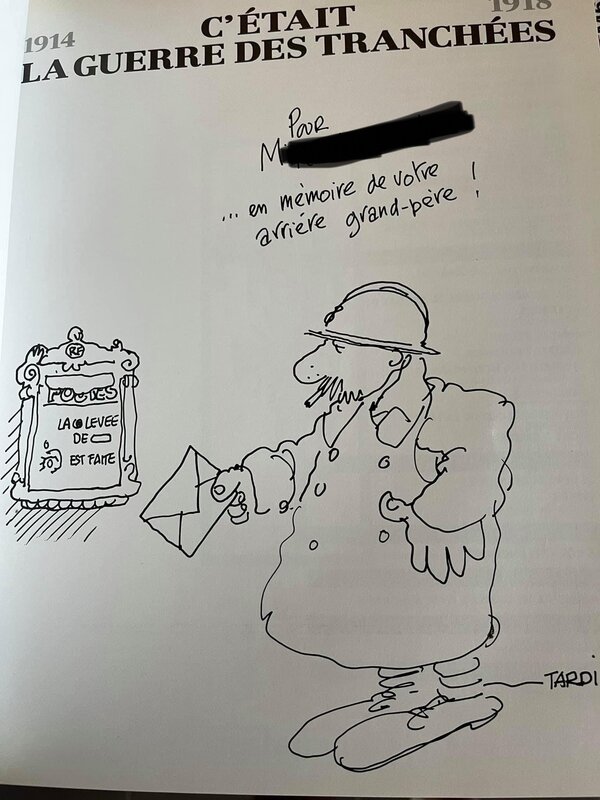 1914
C'ÉTAIT
1918
LA GUERRE DES TRANCHÉES
Pour
... en mémoire de votre
arriére grand-père !
RF
POSTES
LA LEVEE
DE
EST FAITE
TARDI